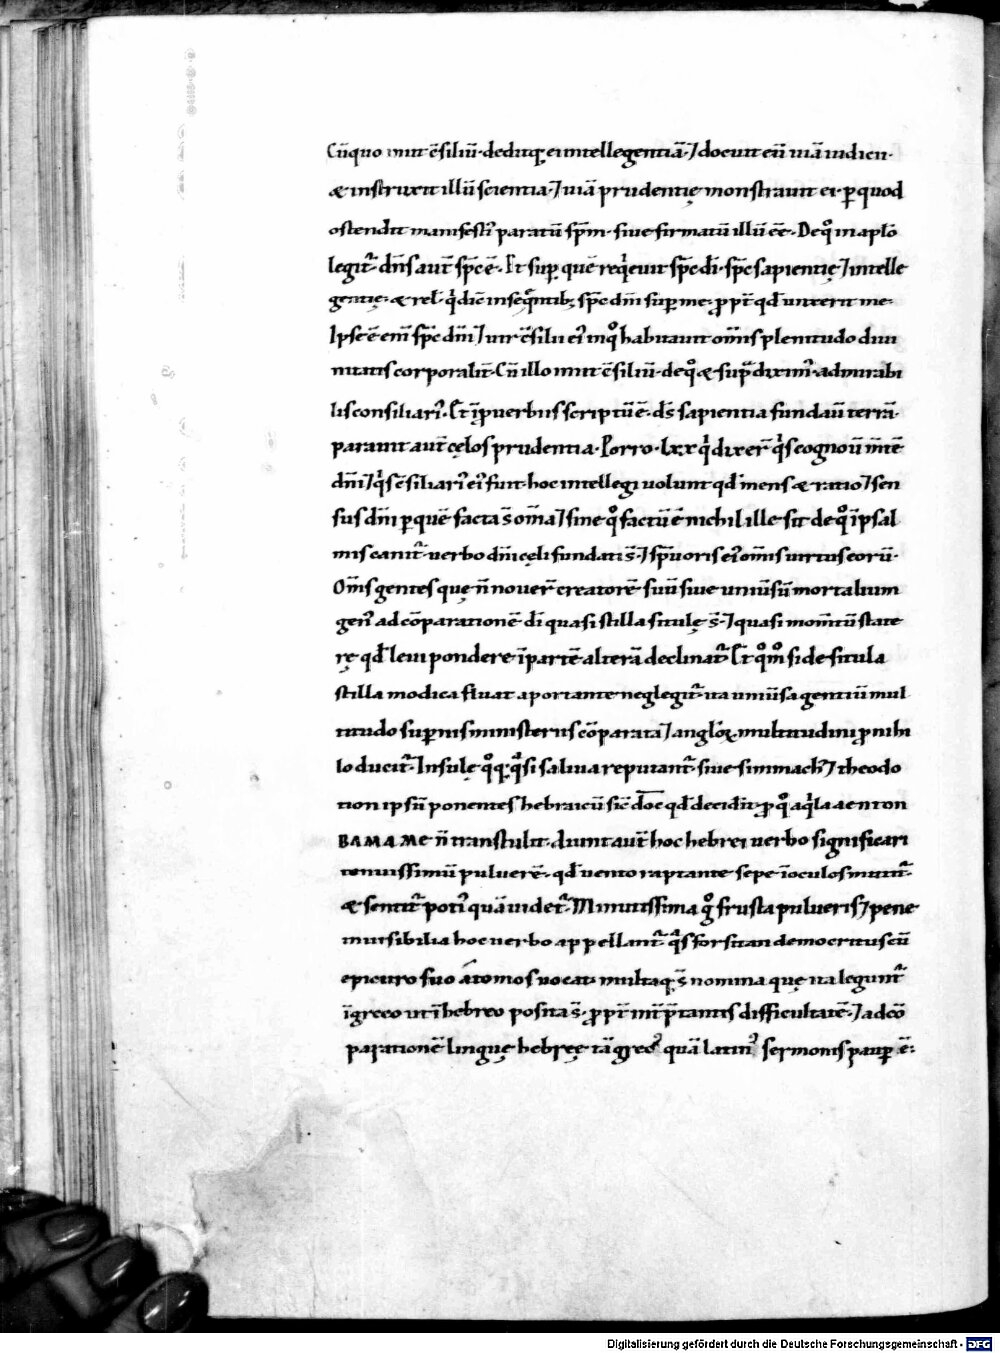 Cū quo iniit c̄siliū· deditq; ei intellegentiā· ⁊ docuit eū uiā iudicii·
& instruxit illū scientia· ⁊ uiā prudentię monstrauit ei· ꝑ quod
ostendit manifesti᷒ paratū sp̄m· siue firmatū illū eē· De qͦ in aplō
legit᷑· dn̄s aut̄ sp̄c ē· Et suꝑ quē reqͥeuit sp̄c dī· sp̄c sapientię ⁊ intelle
gentię· & rel̄· qͥ dic̄ in seqͣntib; sp̄c dn̄i suꝑ me· ꝓpt̄ qd̄ unxerit me·
Ipse ē eni̅ sp̄c dn̄i ⁊ uir c̄silii ei᷒ in qͦ habitauit om̄is plenitudo diui
nitatis corporalit̄· Cū illo iniit c̄siliū· de qͦ & supͣ dixim᷒· admirabi
lis consiliari᷒· Et ī ꝓuerbiis scriptū ē· ds̄ sapientia fundauͭ terrā·
parauit aut̄ cęlos prudentia· Porro· lxx qͥ dixer̄ qͥs cognouͭ m̄tē
dn̄i ⁊ qͥs c̄siliari᷒ ei᷒ fuit· hoc intellegi uolunt qd̄ mens & ratio ⁊ sen
sus dn̄i ꝑ quē facta s̄ om̄ia ⁊ sine qͦ factū ē nichil ille sit de qͦ ī psal
mis canit᷑· uerbo dn̄i cęli fundati s̄· ⁊ sp̄u oris ei᷒ om̄is uirtus eorū·
Om̄s gentes quę n̄ nouer̄ creatorē suū siue uniūsū mortalium
gen᷒ ad cōparationē dī quasi stilla situlę s̄· ⁊ quasi momn̄tū state
rę qd̄ leui pondere ī partē alterā declinat᷑· Et qͦmͦ si de situla
stilla modica fluat a portante neglegit᷑· ita uniūsa gentiū mul
titudo suꝑnis ministeriis cōparata ⁊ angloꝝ multitudini ꝓ nihi
lo ducit᷑· Insulę qͦq; qͣsi saliua reputant᷑· siue simmach᷒ ⁊ theodo
tion ipsū ponentes hebraicū sic̄ doc̄ qd̄ decidit᷑· ꝓ qͦ aqͥla λεπτον
ΒΑΛΛΟΜΕ n̄ transtulit· aiunt aut̄ hoc hebrei uerbo significari
tenuissimū puluerē· qd̄ uento raptante sepe ī oculos mittit᷑·
& sentit᷑ poti᷒ quā uidet᷑· Minutissima gͦ frusta pulueris ⁊ pene
inuisibilia hoc uerbo appellant᷑· qͣs forsitan democritus cū
epicuro suo átomos uocat· multaq; s̄ nomina quę ita legunt᷑
ī greco ut ī hebreo posita s̄· ꝓpt̄ int̄pͬtantis difficultatē· ⁊ ad cō
parationē linguę hebreę tā greci quā latini᷒ sermonis pauꝑ ē·
Digitalisierung gefördert durch die Deutsche Forschungsgemeinschaft - DFG